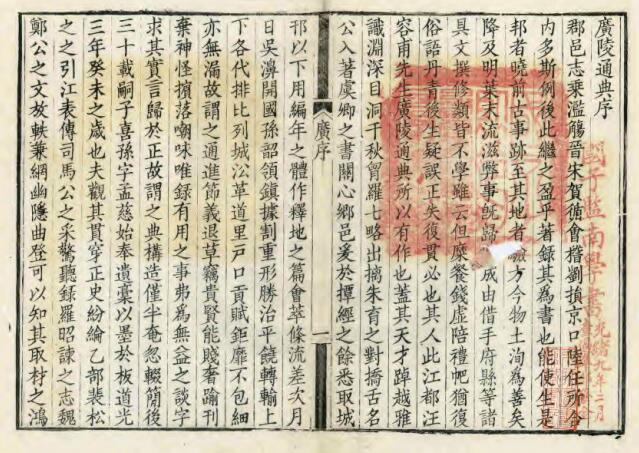 廣陵通典序
郡邑志乘濫觴晉宋賀循會稽劉損京口陸任所合
內多斯例後此繼之盈乎著錄其為書也能使生是
邦者曉前古事跡至其地者驗方今物土洵為善矣
降及明葉末流滋弊事既歸成由借手府縣等諸
具文撰修類皆不學雖云但糜餐錢虛陪禮帊猶復
俗語丹青後生疑誤正失復貫必也其人此江都汪
容甫先生廣陵通典所以有作也蓋其天才踔越雅
識淵深目洞千秋胷羅七略出摛朱育之對撟舌名
公入著虞卿之書關心鄉邑爰於撢經之餘悉取城
廣序
一
邗以下用編年之體作釋地之篇會萃條流差次月
日吳濞開國孫韶領鎮據割重形勝治平饒轉輸上
下各代排比列城公革道里戶口貢賦鉅靡不包細
亦無漏故謂之通進節義退草竊貴賢能賤奢踰刊
棄神怪擯落嘲咏唯錄有用之事弗為無益之談字
求其實言歸於正故謂之典構造僅半奄忽輟簡後
三十載嗣子喜孫字孟慈始奉遺稾以墨於板道光
三年癸未之歲也夫觀其貫穿正史紛綸乙部裴松
之之引江表傳司馬公之采驚聽錄羅昭諫之志魏
鄭公之文放軼兼網幽隱曲登可以知其取材之鴻
國子監南學書
光緒九年二月